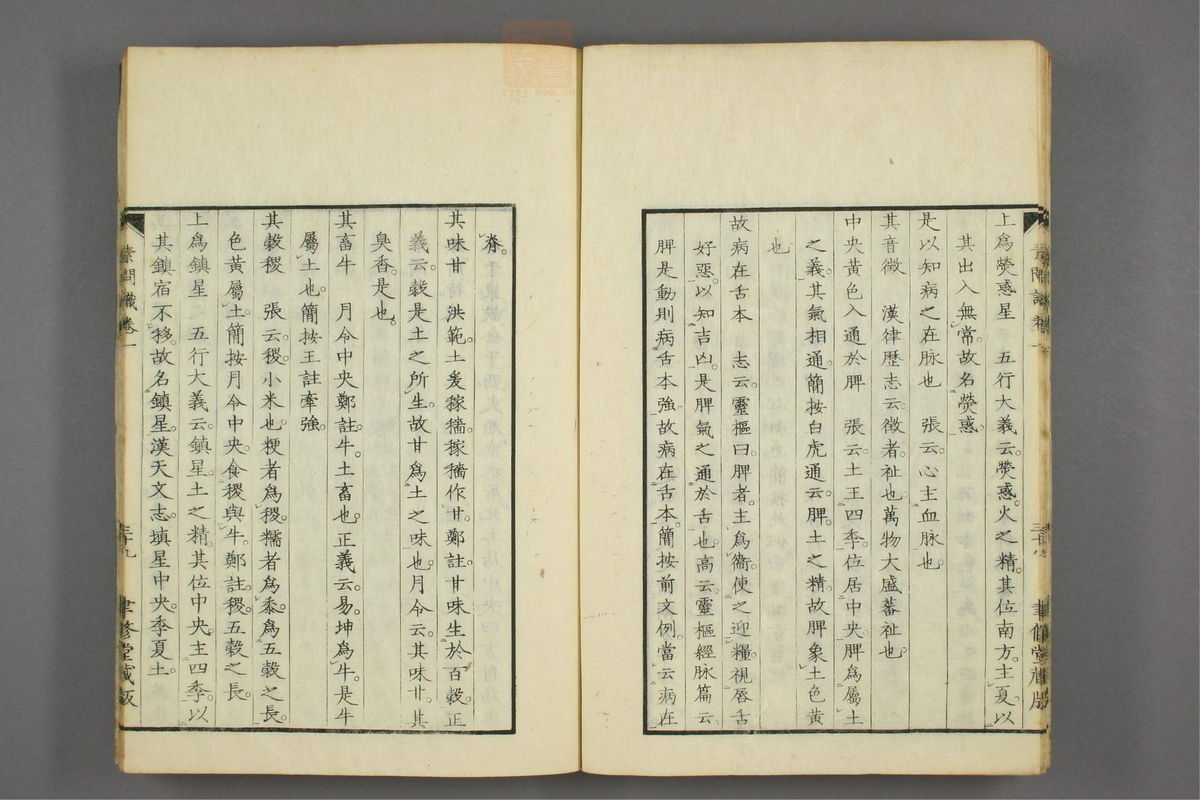 上爲熒惑星　五行大義云。熒惑。火之精。其位南方。主夏。以
其出入無常。故名熒惑。
是以知病之在脉也　張云。心主血脉也
其音徵　漢律歷志云。徵者。祉也。萬物大盛蕃祉也
中央黃色入通於脾　張云。土王四季。位居中央。脾爲屬土
之義。其氣相通。簡按白虎通云。脾。土之精。故脾象土色黃
也
故病在舌本　志云。靈樞曰。脾者。主爲衞。使之迎糧。視唇舌
好惡。以知吉凶。是脾氣之通於舌也。高云。靈樞經脉篇云
脾是動則病舌本強。故病在舌本。簡按前文例。當云病在
脊。
其味甘　洪範。土爰稼穡。稼穡作甘。鄭註。甘味生於百穀。正
義云。穀是土之所生。故甘爲土之味也。月令云。其味甘。其
臭香。是也。
其畜牛　月令中央鄭註。牛。土畜也。正義云。易。坤爲牛。是牛
屬土也。簡按王註牽強。
其穀稷　張云。稷。小米也。粳者爲稷。糯者爲黍。爲五穀之長。
色黃屬土。簡按月令中央。食稷與牛。鄭註。稷。五穀之長。
上爲鎮星　五行大義云。鎮星。土之精。其位中央。主四季。以
其鎮宿不移。故名鎮星。漢天文志。塡星中央。季夏土。
素問識卷一
三十九
聿修堂藏版
zysj.com.cn